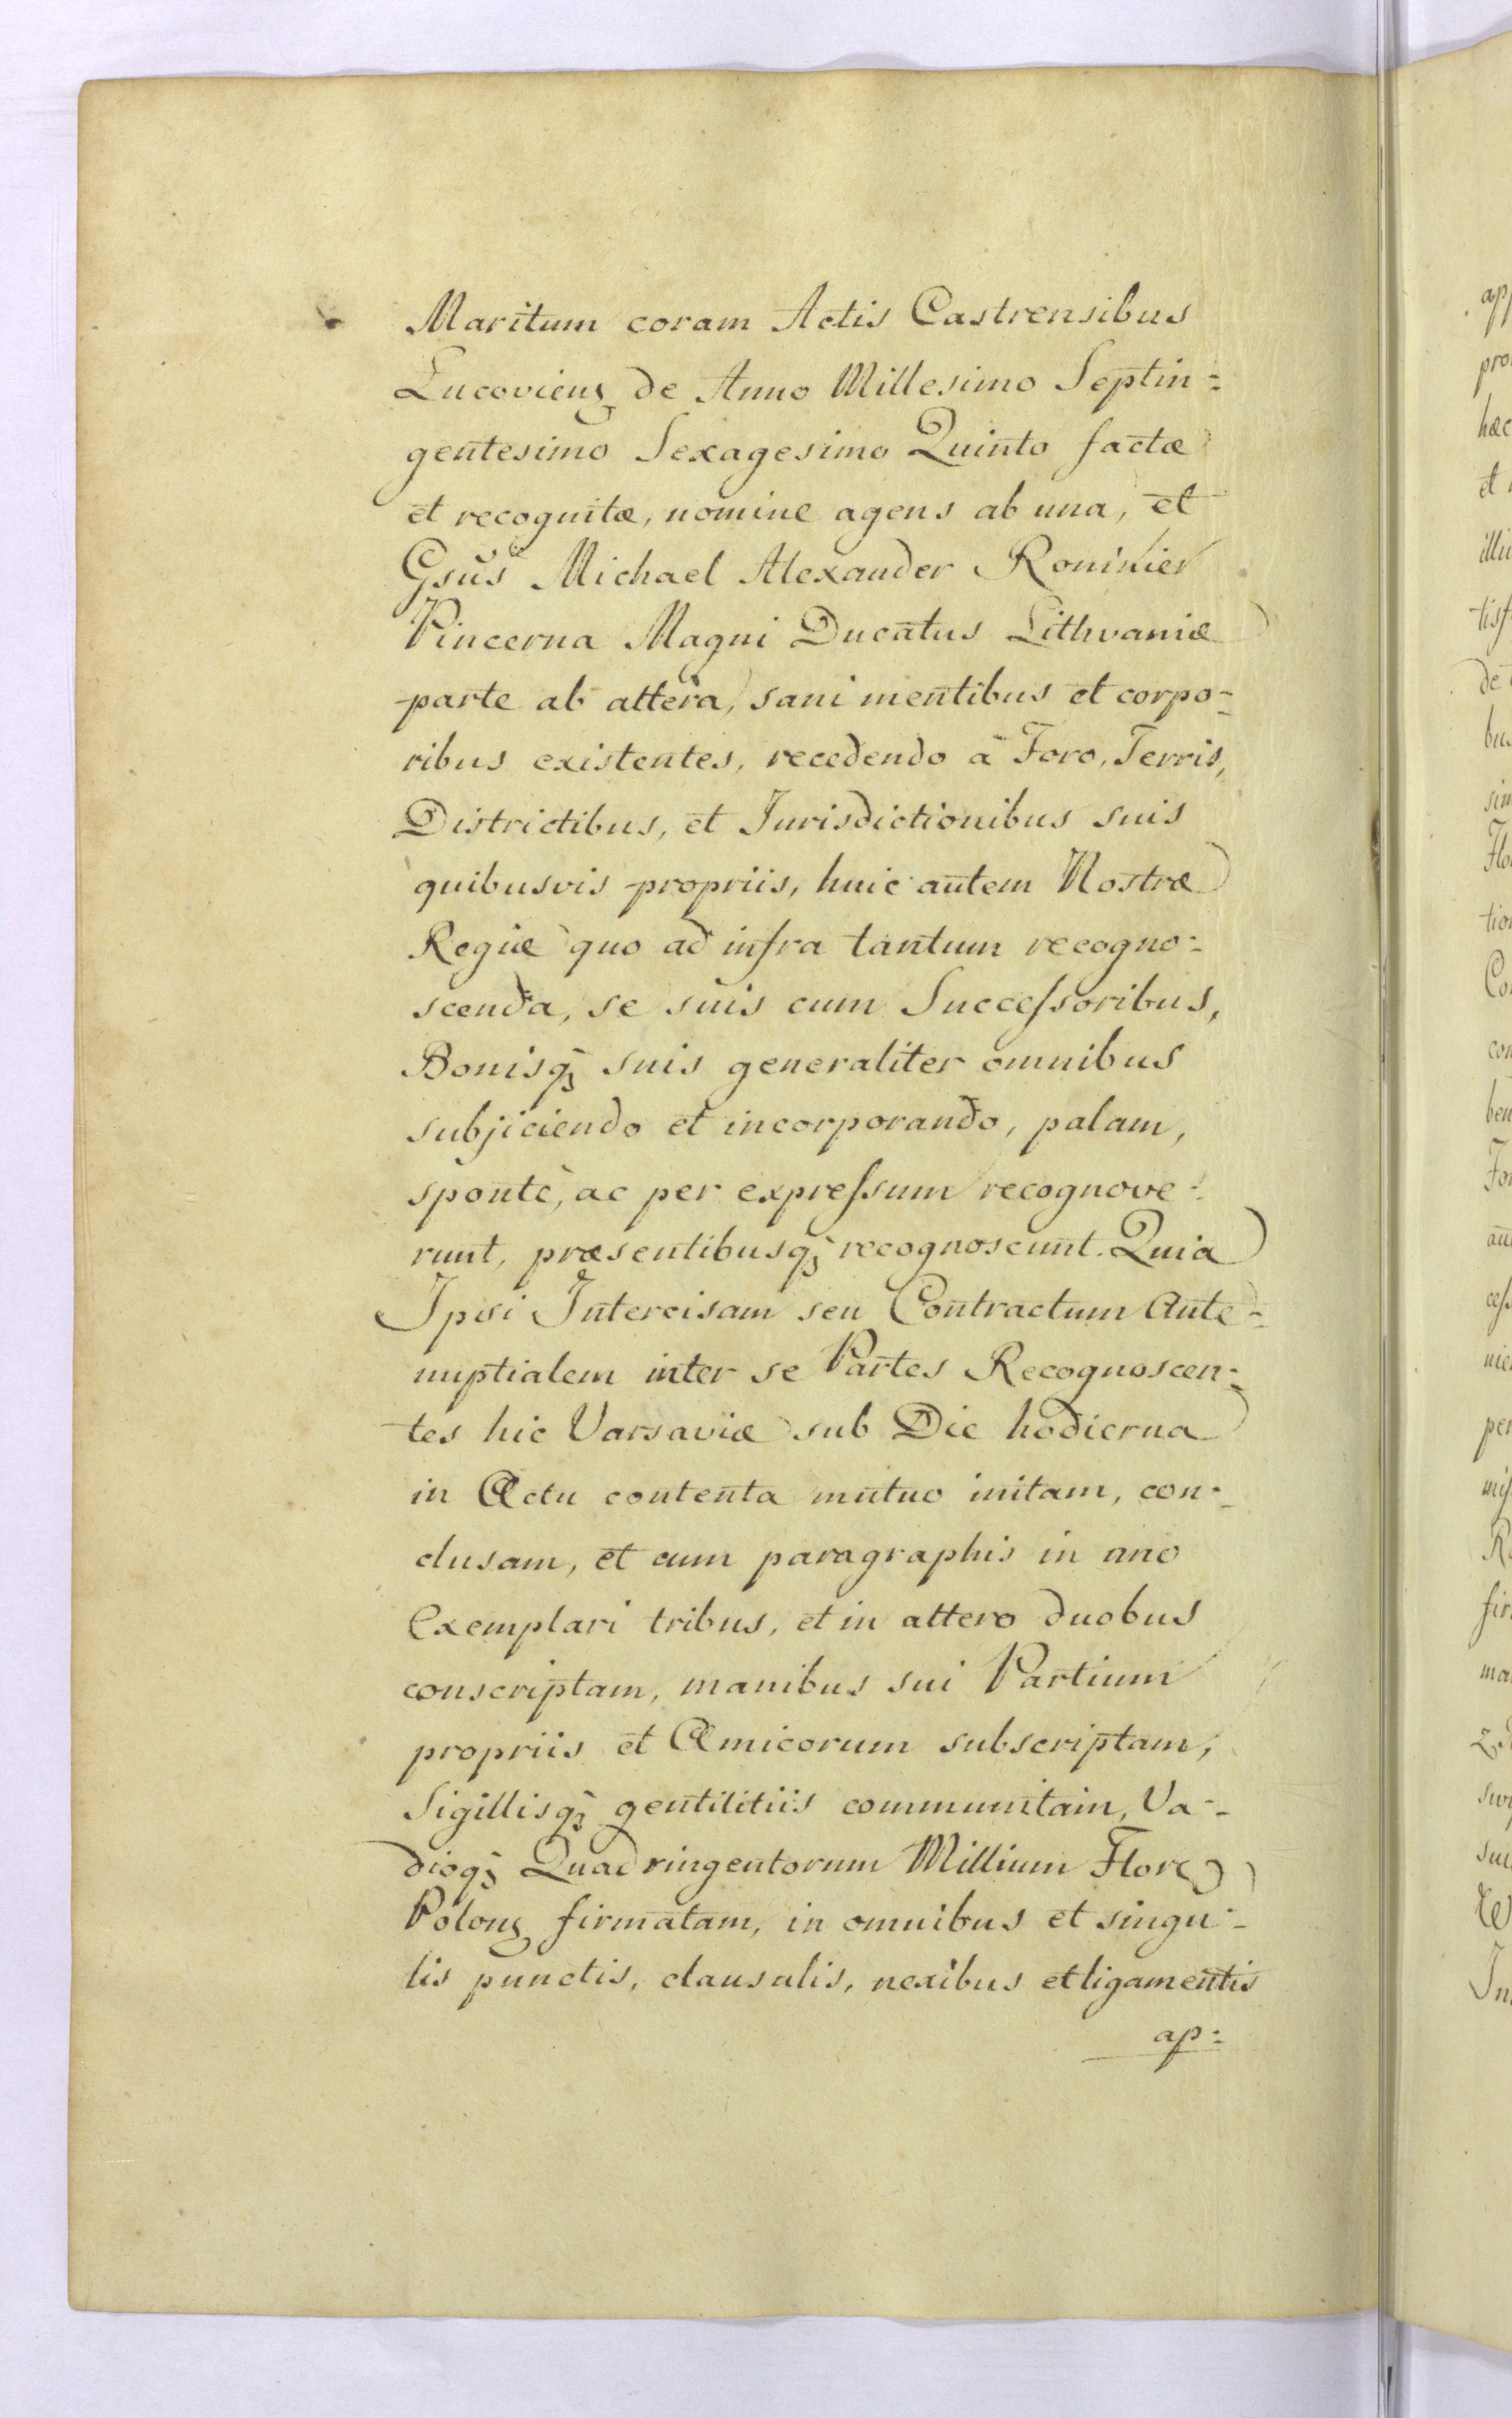 Maritum coram Actis Castrensibus
Lucovienꝫ de Anno Millesimo Septin=
gentesimo Sexagesimo Quinto factæ
et recognitæ, nomine agens ab una, et
Gsus Michael Alexander Ronikier
Pincerna Magni Ducatus Lithvaniæ
parte ab altera, sani mentibus et corpo=
ribus existentes, recedendo à Foro, Terris,
Districtibus, et Jurisdictionibus suis
quibusvis propriis, huic autem Nostræ
Regiæ quo ad infra tantum recogno=
scenda, se suis cum Successoribus,
Bonisqꝫ suis generaliter omnibus
subjiciendo et incorporando, palam,
spontè, ac per expressum recognove=
runt, præsentibusqꝫ recognoscunt. Quia
Ipsi Intercisam seu Contractum Ante=
nuptialem inter se Partes Recognoscen=
tes hic Varsaviæ sub Die hodierna
in Actu contenta mutuo initam, con=
clusam, et cum paragraphis in uno
Exemplari tribus, et in altero duobus
conscriptam, manibus sui Partium
propriis et Amicorum subscriptam,
Sigillisqꝫ gentilitiis communitam, Va=
dioqꝫ Quadringentorum Millium Flore
Polonꝫ firmatam, in omnibus et singu=
lis punctis, clausulis, nexibus et ligamentis
ap=